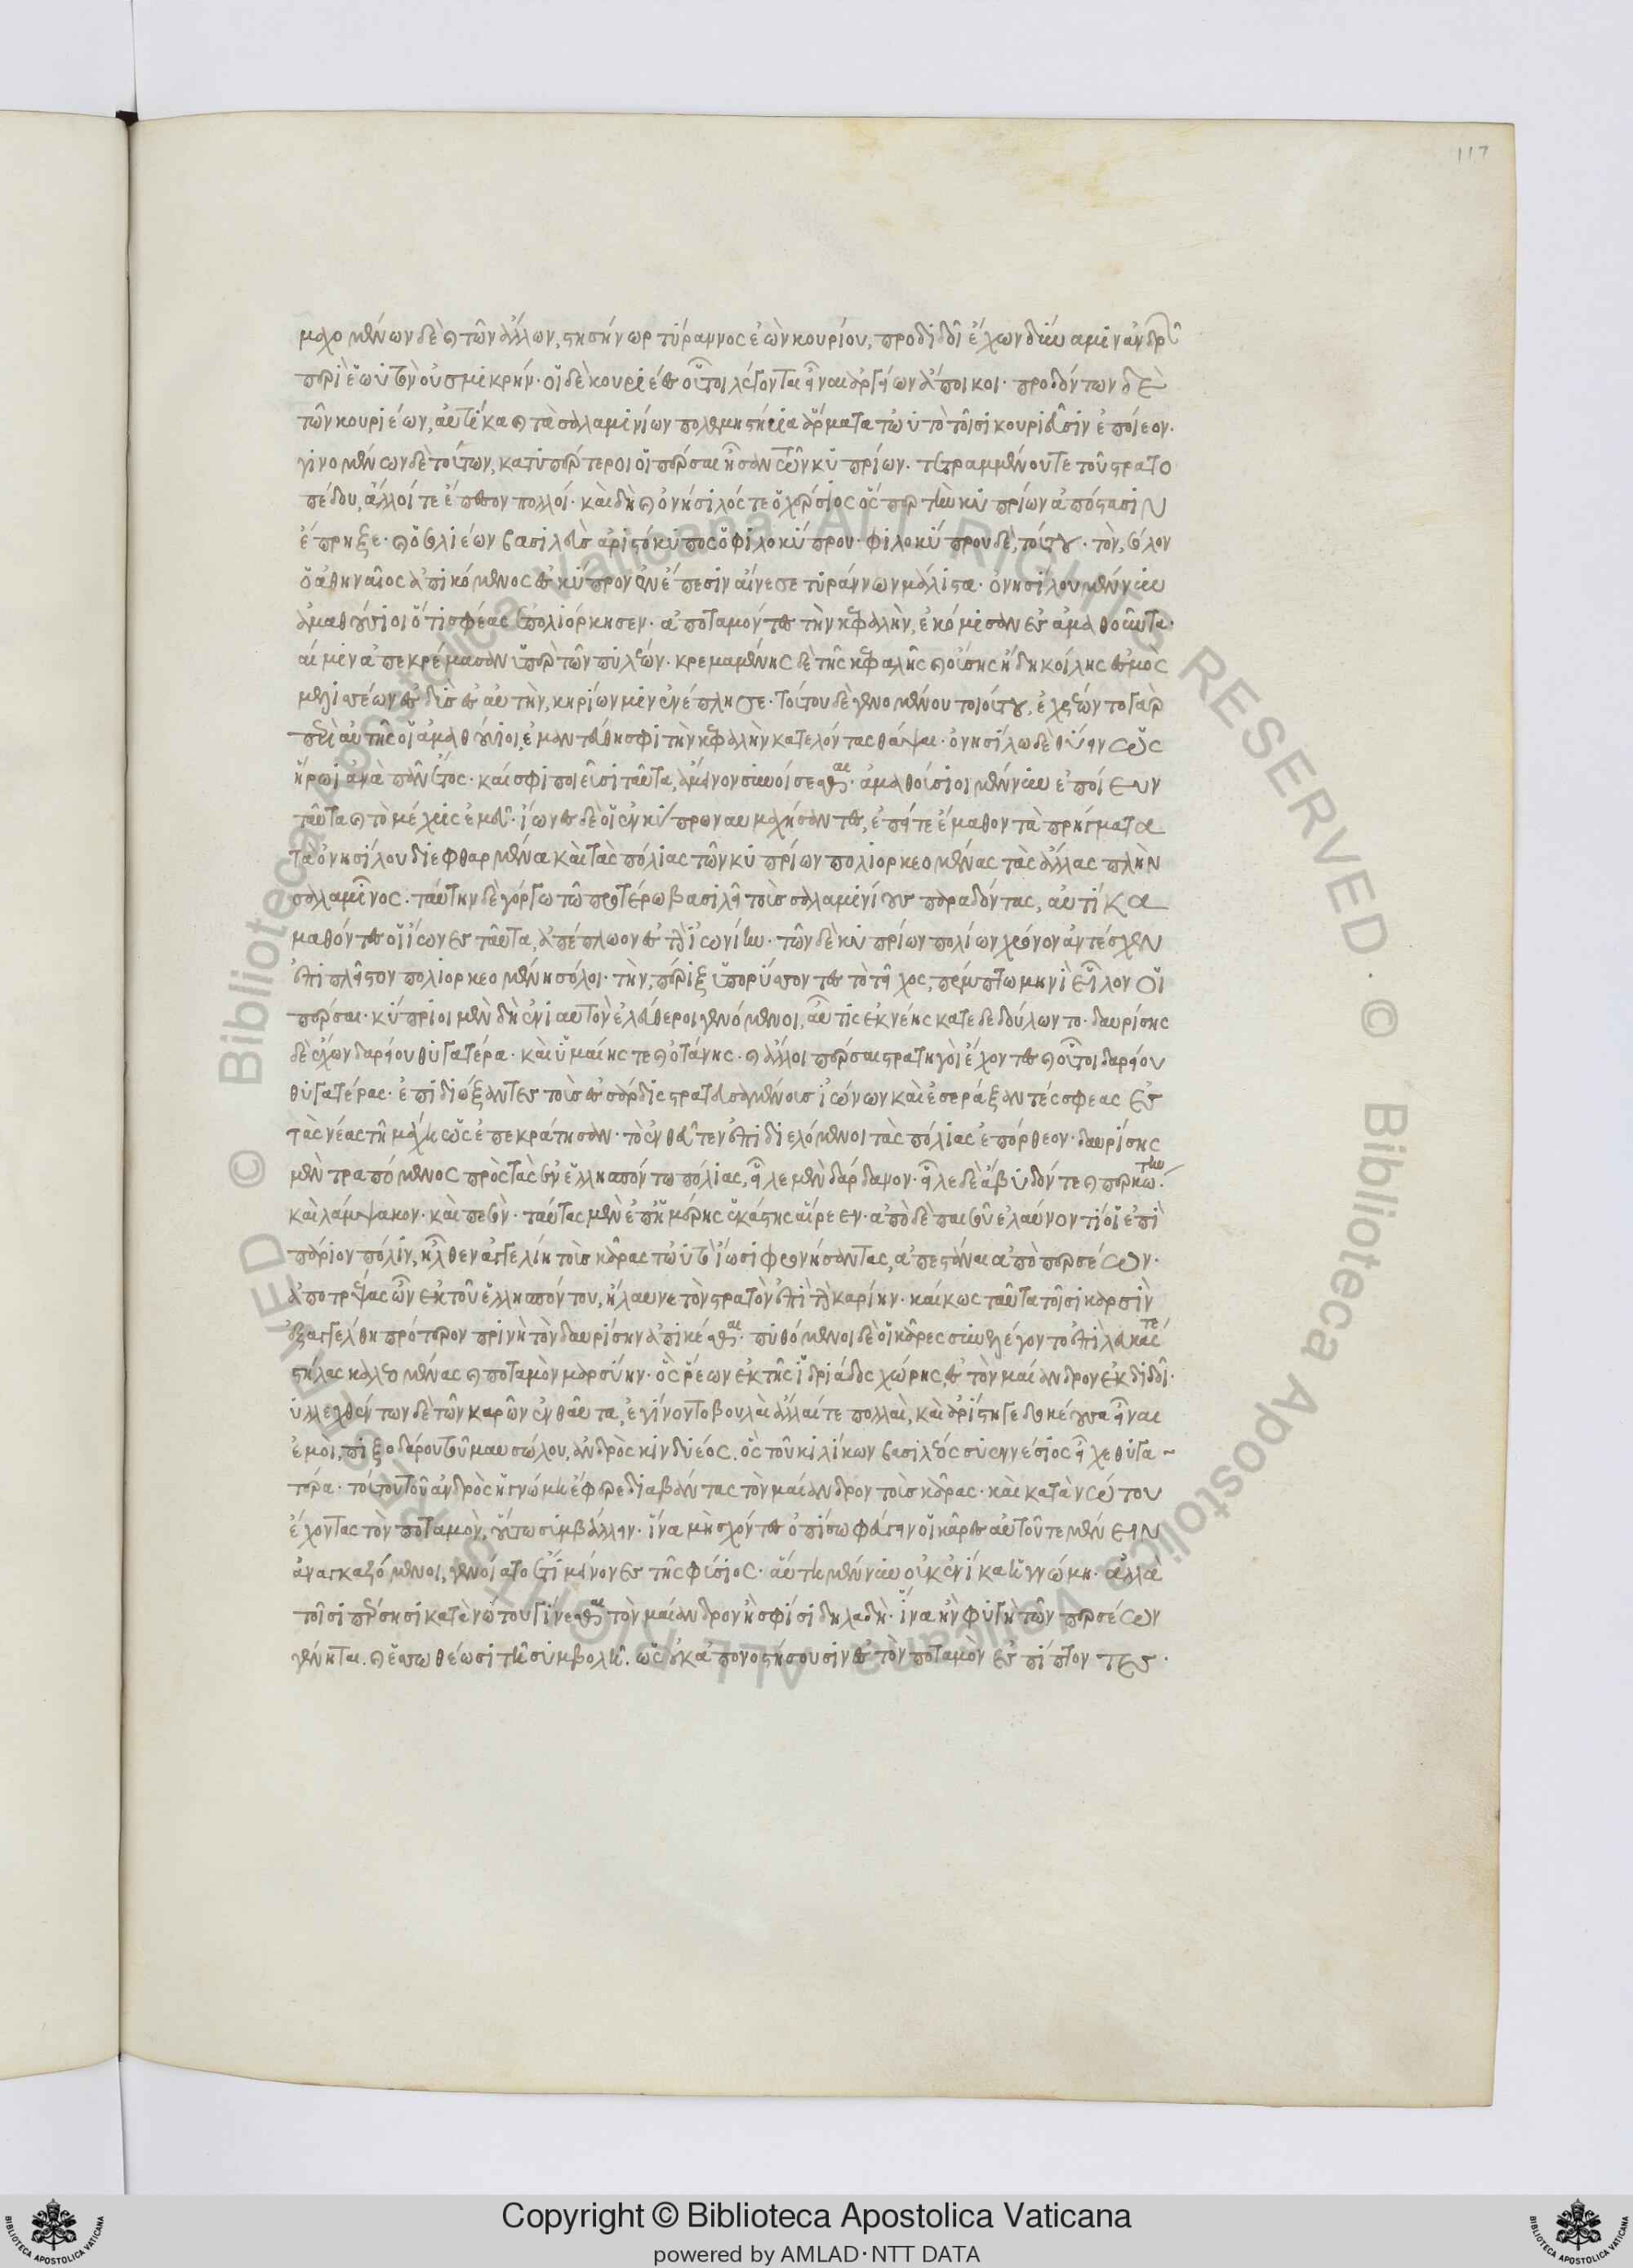 117
μαχομένων δὲ καὶ τῶν ἄλλων, στησήνωρ τύραννος ἐὼν κουρίου, προδιδοῖ ἔχων δύναμιν ἀνδρῶν
περὶ ἑωυτὸν οὐ σμικρήν. οἱ δὲ κουριέες οὗτοι λέγονται εἶναι ἀργείων ἄποικοι. προδόντων δὲ
τῶν κουριέων, αὐτίκα καὶ τὰ σαλαμινίων πολεμιστήρια ἅρματα τὠυτὸ τοῖσι κουριεῦσιν ἐποίεον.
γινομένων δὲ τούτων, κατυπέρτεροι οἱ πέρσαι ἦσαν τῶν κυπρίων. τετραμμένου τε τοῦ στρατο
πέδου, ἄλλοί τε ἔπεσον πολλοί. καὶ δὴ καὶ ὀνήσιλός τε ὁ χέρσιος ὅς περ τὴν κυπρίων ἀπόστασιν
ἔπρηξε. καὶ ὁ σολίων βασιλεὺς ἀριστόκυπρος ὁ φιλοκύπρου. φιλοκύπρου δὲ, τούτου. τὸν, σόλων
ὁ ἀθηναῖος ἀπικόμενος ἐς κύπρον ἐν ἔπεσιν αἴνεσε τυράννων μάλιστα. ὀνησίλου μέν νυν
ἀμαθούσιοι ὅτι σφέας ἐπολιόρκησεν. ἀποταμόντες τὴν κεφαλὴν, ἐκόμισαν ἐς ἀμαθοῦντα.
καί μιν ἀπεκρέμασαν ὑπὲρ τῶν πυλέων. κρεμαμένης δὲ τῆς κεφαλῆς καὶ οὔσης ἤδη κοίλης ἐσμὸς
μελισσέων ἐσδὺς ἐς αὐτὴν, κηρίων μιν ἐνέπλησε. τούτου δὲ γενομένου τοιούτου, ἐχρέωντο γὰρ
περὶ αὐτῆς οἱ ἀμαθούσιοι, ἐμαντεύθη σφι τὴν κεφαλὴν κατελόντας θάψαι. ὀνησίλω δὲ θύειν ὡς
ἥρωι ἀνὰ πᾶν ἔτος. καί σφι ποιεῦσι ταῦτα, ἄμεινον συνοίσεσθαι. ἀμαθούσιοι μέν νυν ἐποίευν
ταῦτα καὶ τὸ μέχρις ἐμεῦ. ἴωνες δὲ οἱ ἐν κύπρω ναυμαχήσαντες, ἐπείτε ἔμαθον τὰ πρήγματα
τὰ ὀνησίλου διεφθαρμένα καὶ τὰς πόλιας τῶν κυπρίων πολιορκεομένας τὰς ἄλλας πλὴν
σαλαμῖνος. ταύτην δὲ γόργω τῶ προτέρω βασιλῆι τοὺς σαλαμινίους παραδόντας, αὐτίκα
μαθόντες οἱ ἴωνες ταῦτα, ἀπέπλωον ἐς τὴν ἰωνίην. τῶν δὲ κυπρίων πολίων χρόνον ἀντέσχεν
ἐπὶ πλεῖστον πολιορκεομένη σόλοι. τὴν, πέριξ ὑπορύσσοντες τὸ τεῖχος, πέμπτω μηνὶ εἷλον οἱ
πέρσαι. κύπριοι μὲν δὴ ἐνιαυτὸν ἐλεύθεροι γενόμενοι, αὖτις ἐκ νέης κατεδεδούλωντο. δαυρίσης
δὲ ἔχων δαρείου θυγατέρα. καὶ ὑμαίης τε καὶ ὀτάνης. καὶ ἄλλοι πέρσαι στρατηγοὶ ἔχοντες καὶ οὗτοι δαρείου
θυγατέρας. ἐπιδιώξαντες τοὺς ἐς σάρδις στρατευσαμένους ἰώνων καὶ ἐσεράξαντές σφεας ἐς
τὰς νέας τῆ μάχη ὡς ἐπεκράτησαν. τὸ ἐνθεῦτεν ἐπιδιελόμενοι τὰς πόλιας ἐπόρθεον. δαυρίσης
μὲν τραπόμενος πρὸς τὰς ἐν ἑλλησπόντω πόλιας, εἷλε μὲν δάρδανον. εἷλε δὲ ἄβυδόν τε καὶ περκώτην.
καὶ λάμψακον. καὶ παισόν. ταύτας μὲν ἐπ' ἡμέρης ἑκάστης αἵρεεν. ἀπὸ δὲ παισοῦ ἐλαύνοντί οἱ ἐπὶ
πάριον πόλιν, ἦλθεν ἀγγελίη τοὺς κᾶρας τὠυτὸ ἴωσι φρονήσαντας, ἀπεστάναι ἀπὸ περσέων.
ἀποτρέψας ὦν ἐκ τοῦ ἑλλησπόντου, ἤλαυνε τὸν στρατὸν ἐπὶ τὴν καρίην. καί κως ταῦτα τοῖσι καρσὶν
ἐξαγγέλθη πρότερον πρινὴ τὸν δαυρίσην ἀπικέσθαι. πυθόμενοι δὲ οἱ κᾶρες συνελέγοντο ἐπὶ λευκάς τε
στήλας καλεομένας καὶ ποταμὸν μαρσύην. ὃς ῥέων ἐκ τῆς ἰδριάδος χώρης, ἐς τὸν μαίανδρον ἐκδιδοῖ.
συλλεχθέντων δὲ τῶν καρῶν ἐνθαῦτα, ἐγίνοντο βουλαὶ ἄλλαι τε πολλαὶ, καὶ ἀρίστη γε δοκέουσα εἶναι
ἐμοὶ, πιξοδάρου τοῦ μαυσώλου, ἀνδρὸς κινδυέος. ὃς τοῦ κιλίκων βασιλέος συεννέσιος εἶχε θυγα
τέρα. τούτου τοῦ ἀνδρὸς ἡ γνώμη ἔφερε διαβάντας τὸν μαίανδρον τοὺς κᾶρας. καὶ κατὰ νώτου
ἔχοντας τὸν ποταμὸν, οὕτω συμβάλλειν. ἵνα μὴ ἔχοντες ὀπίσω φεύγειν οἱ κᾶρες αὐτοῦ τε μένειν
ἀναγκαζόμενοι, γενοίατο ἔτι ἀμείνονες τῆς φύσιος. αὕτη μέν νυν οὐκ ἐνίκα ἡ γνώμη. ἀλλὰ
τοῖσι πέρσησι κατὰ νώτου γίνεσθαι τὸν μαίανδρον ἢ σφίσι δηλαδή. ἵνα ἢν φυγὴ τῶν περσέων
γένηται. καὶ ἑσσωθέωσι τῆ συμβολῆ. ὡς οὐκ ἀπονοστήσουσιν ἐς τὸν ποταμὸν ἐσπίπτοντες.
Copyright © Biblioteca Apostolica Vaticana
powered by AMLAD·NTT DATA